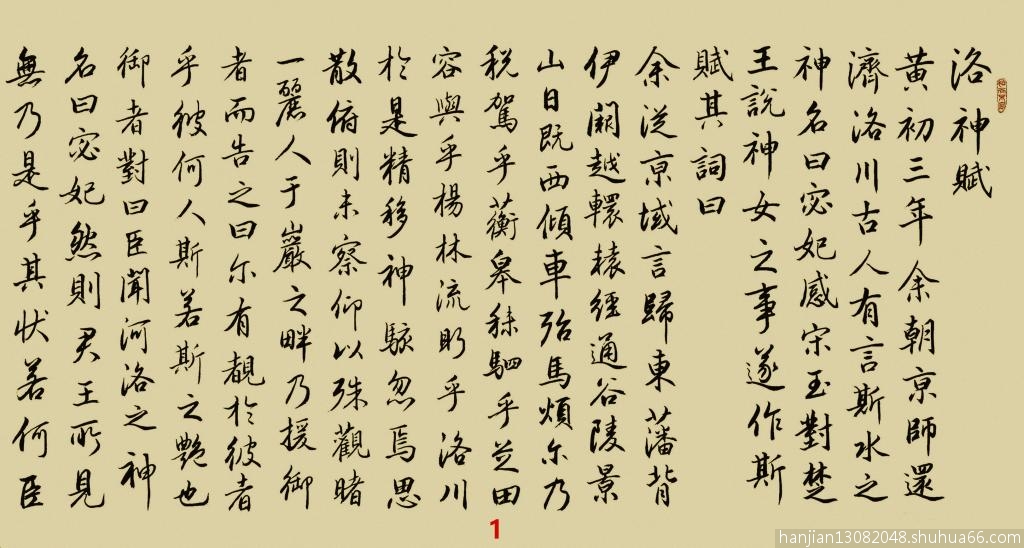 洛神賦
黃初三年余朝京師還
濟洛川古人有言斯水之
神名曰宓妃感宋玉對楚
王說神女之事遂作斯
賦其詞曰
余從京域言歸東藩背
伊闕越轘轅經通谷陵景
山日既西傾車殆馬煩尔乃
税駕乎蘅皋秣駟乎芝田
容與乎楊林流眄乎洛川
於是精移神駭忽焉思
散俯則未察仰以殊觀睹
一麗人于巖之畔乃援御
者而告之曰尔有覩於彼者
乎彼何人斯若斯之艷也
御者對曰臣聞河洛之神
名曰宓妃然則君王所見
無乃是乎其狀若何臣
1
hanjian13082048.shuhua66.com